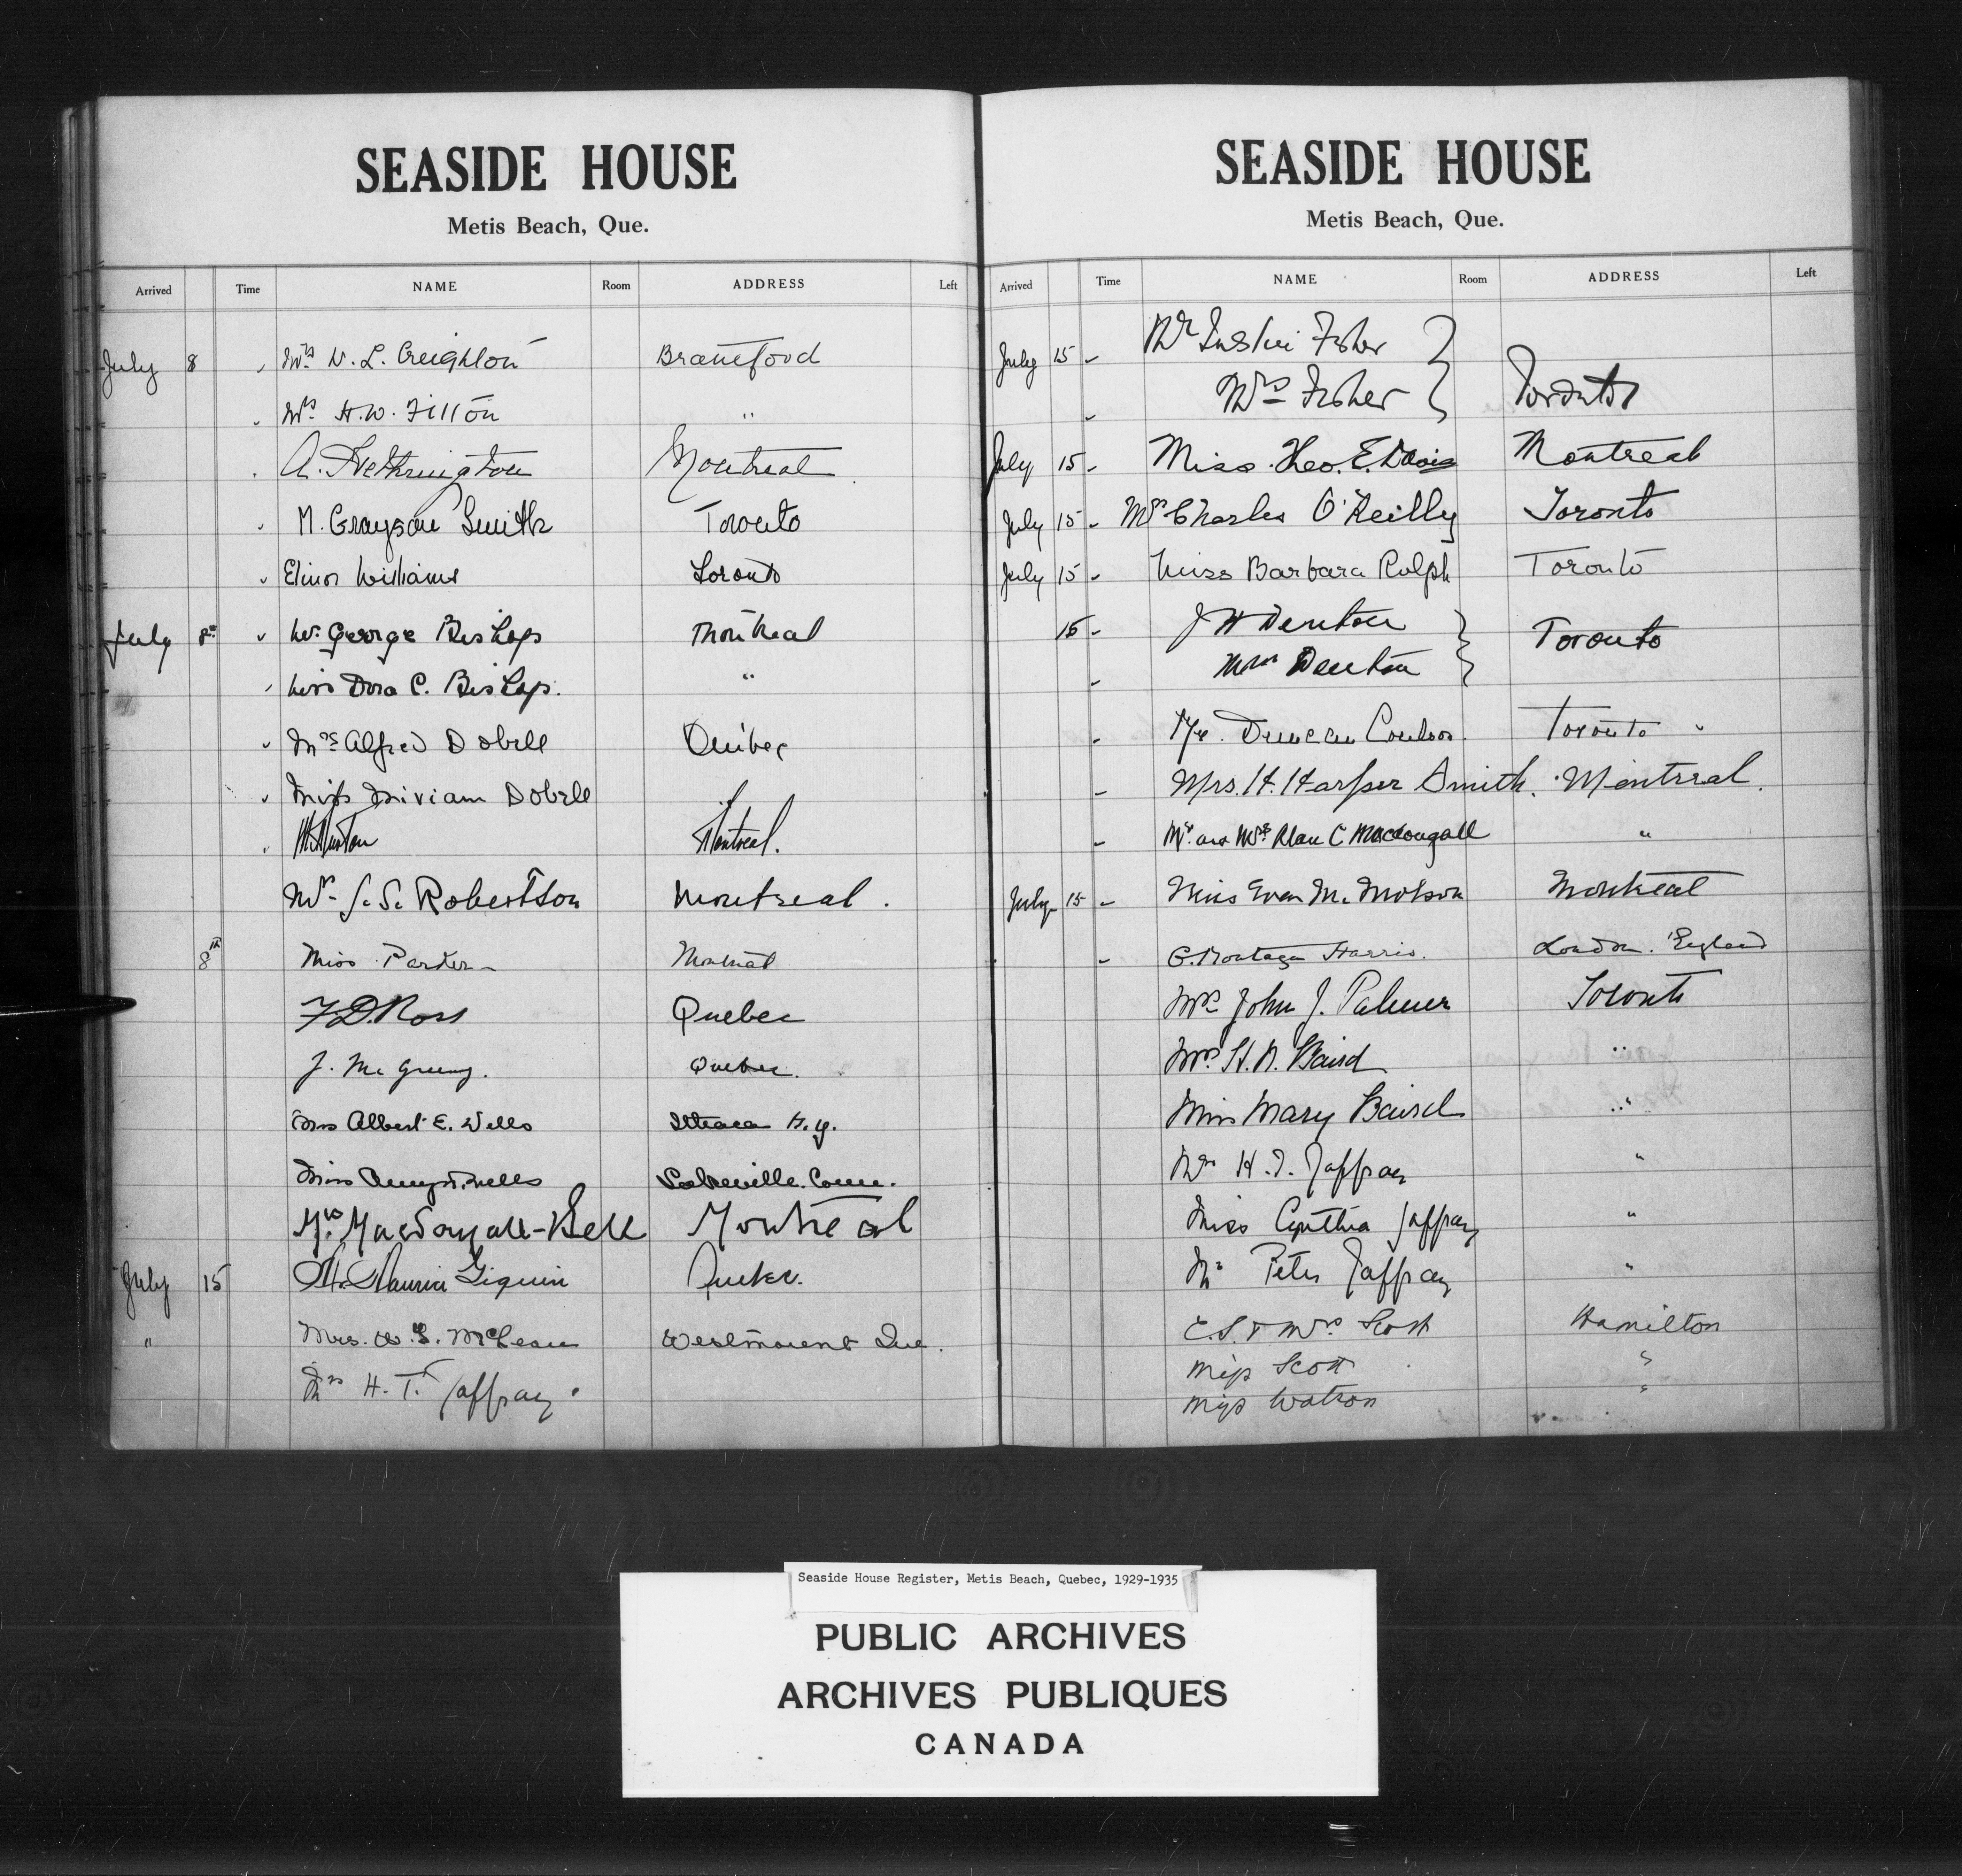 SEASIDE HOUSE
Metis Beach, Que.
Arrived Time NAME Room ADDRESS Left
July 8 Mrs W. L. Creighton Brantford
Mrs H. W. Fitton "
A. Hethrington Montreal
M. Grayson Smith Toronto
Elinor Williams Toronto
July 8th Mr. George Bishop Montreal
Miss Dora C. Bishop. "
Mrs Alfred Dobell Quebec
Miss Miriam Dobell "
Montreal.
S. Robertson Montreal.
8th Miss Parker Montreal
F. D. Ross Quebec
J. McGreevy. Quebec.
Mrs Albert E. Wells Ithaca N.Y.
Miss Wells Conn.
MacDougall-Bell Montreal
July 15 Quebec.
" Mrs. W. S. McLean Westmount Que.
Mrs H. T. Jaffray.
SEASIDE HOUSE
Metis Beach, Que.
Arrived Time NAME Room ADDRESS Left
July 15 Fisher
Mrs Fisher Toronto
July 15 Miss Theo. E. Davis Montreal
July 15 Mrs Charles O'Reilly Toronto
July 15 Miss Barbara Rolph Toronto
15 J W Denton
Mrs Denton Toronto
Mr. Duncan Coulson. Toronto
Mrs. H. Harper Smith. Montreal.
Mr. and Mrs. Alan C Macdougall "
July 15 Miss Evan M. Molson Montreal
G. Montagu Harris. London. England
Mrs John J. Palmer Toronto
Mrs. H. N. Baird "
Miss Mary Baird "
Mrs H. T. Jaffray "
Miss Cynthia Jaffray "
Mr Peter Jaffray "
E. S. & Mrs Scott Hamilton
Miss Scott "
Miss Watson "
Seaside House Register, Metis Beach, Quebec, 1929-1935
PUBLIC ARCHIVES
ARCHIVES PUBLIQUES
CANADA